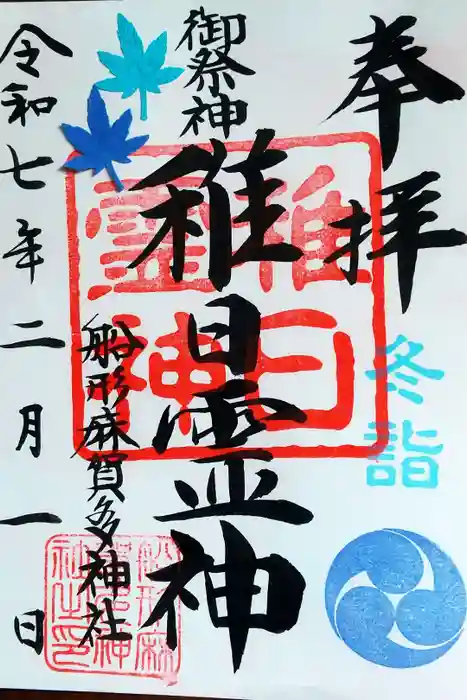 奉拝
冬詣
御祭神
稚日霊神
稚日
霊神
船形麻賀多神社
令和七年二月一日